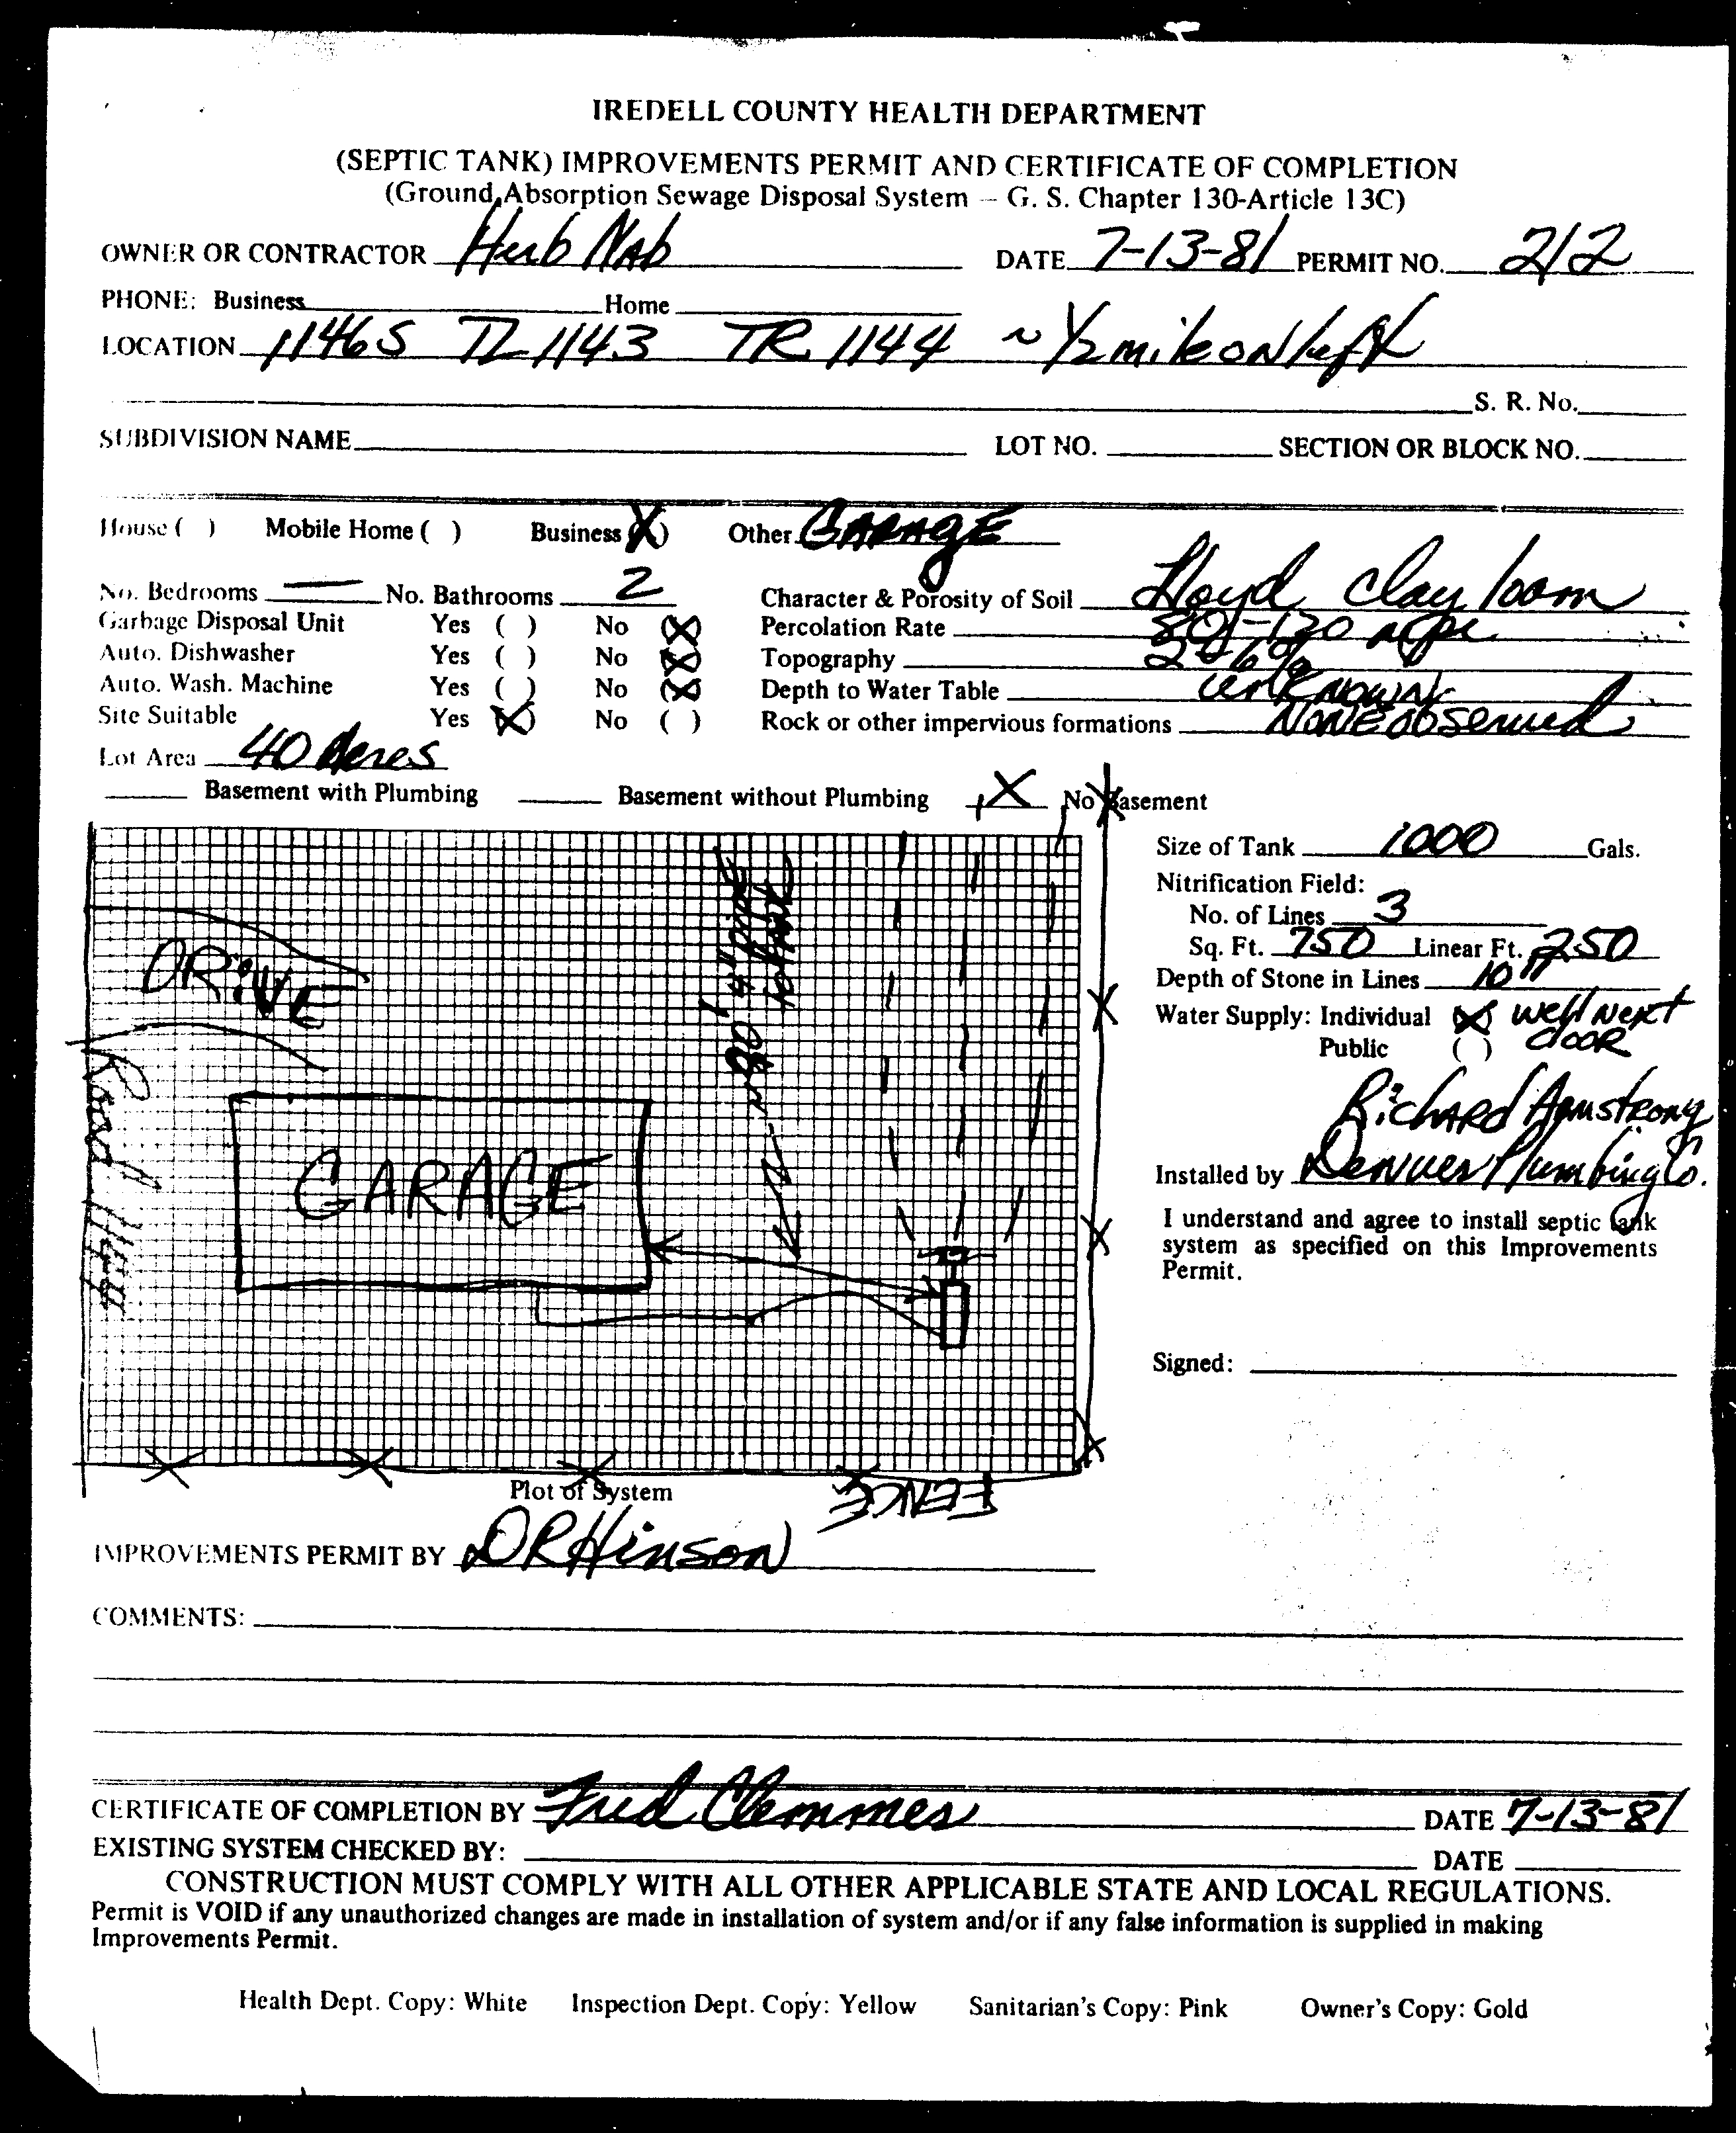 IREDELL COUNTY HEALTH DEPARTMENT
(SEPTIC TANK) IMPROVEMENTS PERMIT AND CERTIFICATE OF COMPLETION
(Ground Absorption Sewage Disposal System – G. S. Chapter 130-Article 13C)
OWNER OR CONTRACTOR Herb Nab DATE 7-13-81 PERMIT NO. 212
PHONE: Business Home
LOCATION 1146S TL 1143 TR 1144 ~ 1/2 mile on left
S. R. No.
SUBDIVISION NAME LOT NO. SECTION OR BLOCK NO.
House ( ) Mobile Home ( ) Business (X) Other GARAGE
No. Bedrooms — No. Bathrooms 2 Character & Porosity of Soil Lloyd clay loam
Garbage Disposal Unit Yes ( ) No (X) Percolation Rate
Auto. Dishwasher Yes ( ) No (X) Topography 2-6%
Auto. Wash. Machine Yes ( ) No (X) Depth to Water Table unknown
Site Suitable Yes (X) No ( ) Rock or other impervious formations NONE observed
Lot Area 40 Acres
Basement with Plumbing Basement without Plumbing X No Basement
Size of Tank 1000 Gals.
Nitrification Field:
No. of Lines 3
Sq. Ft. 750 Linear Ft. 250
Depth of Stone in Lines 10"
Water Supply: Individual (X) well next
Public ( ) door
DRIVE
Road 1144
GARAGE
Richard Armstrong
Installed by Denver Plumbing Co.
I understand and agree to install septic tank
system as specified on this Improvements
Permit.
Signed:
FENCE
Plot of System
IMPROVEMENTS PERMIT BY DR Hinson
COMMENTS:
CERTIFICATE OF COMPLETION BY Fred Clemmes DATE 7-13-81
EXISTING SYSTEM CHECKED BY: DATE
CONSTRUCTION MUST COMPLY WITH ALL OTHER APPLICABLE STATE AND LOCAL REGULATIONS.
Permit is VOID if any unauthorized changes are made in installation of system and/or if any false information is supplied in making
Improvements Permit.
Health Dept. Copy: White Inspection Dept. Copy: Yellow Sanitarian's Copy: Pink Owner's Copy: Gold